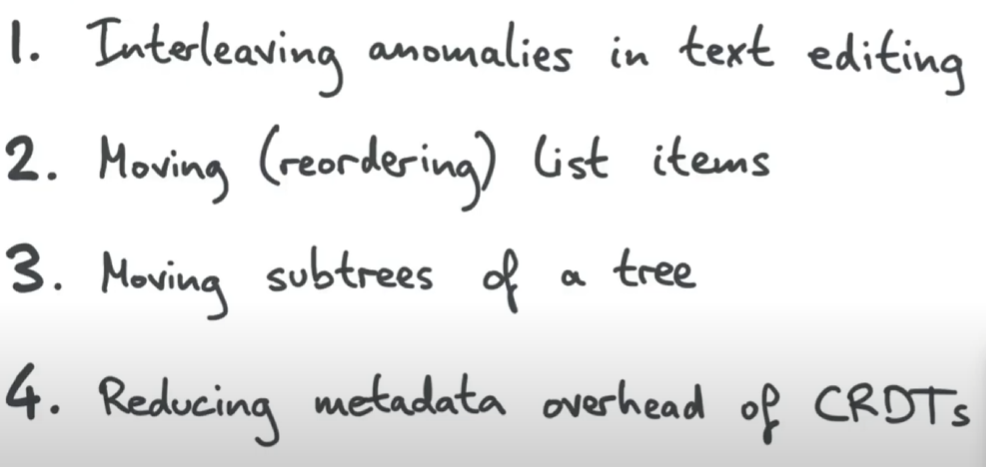 1. Interleaving anomalies in text editing
2. Moving (reordering) list items
3. Moving subtrees of a tree
4. Reducing metadata overhead of CRDTs